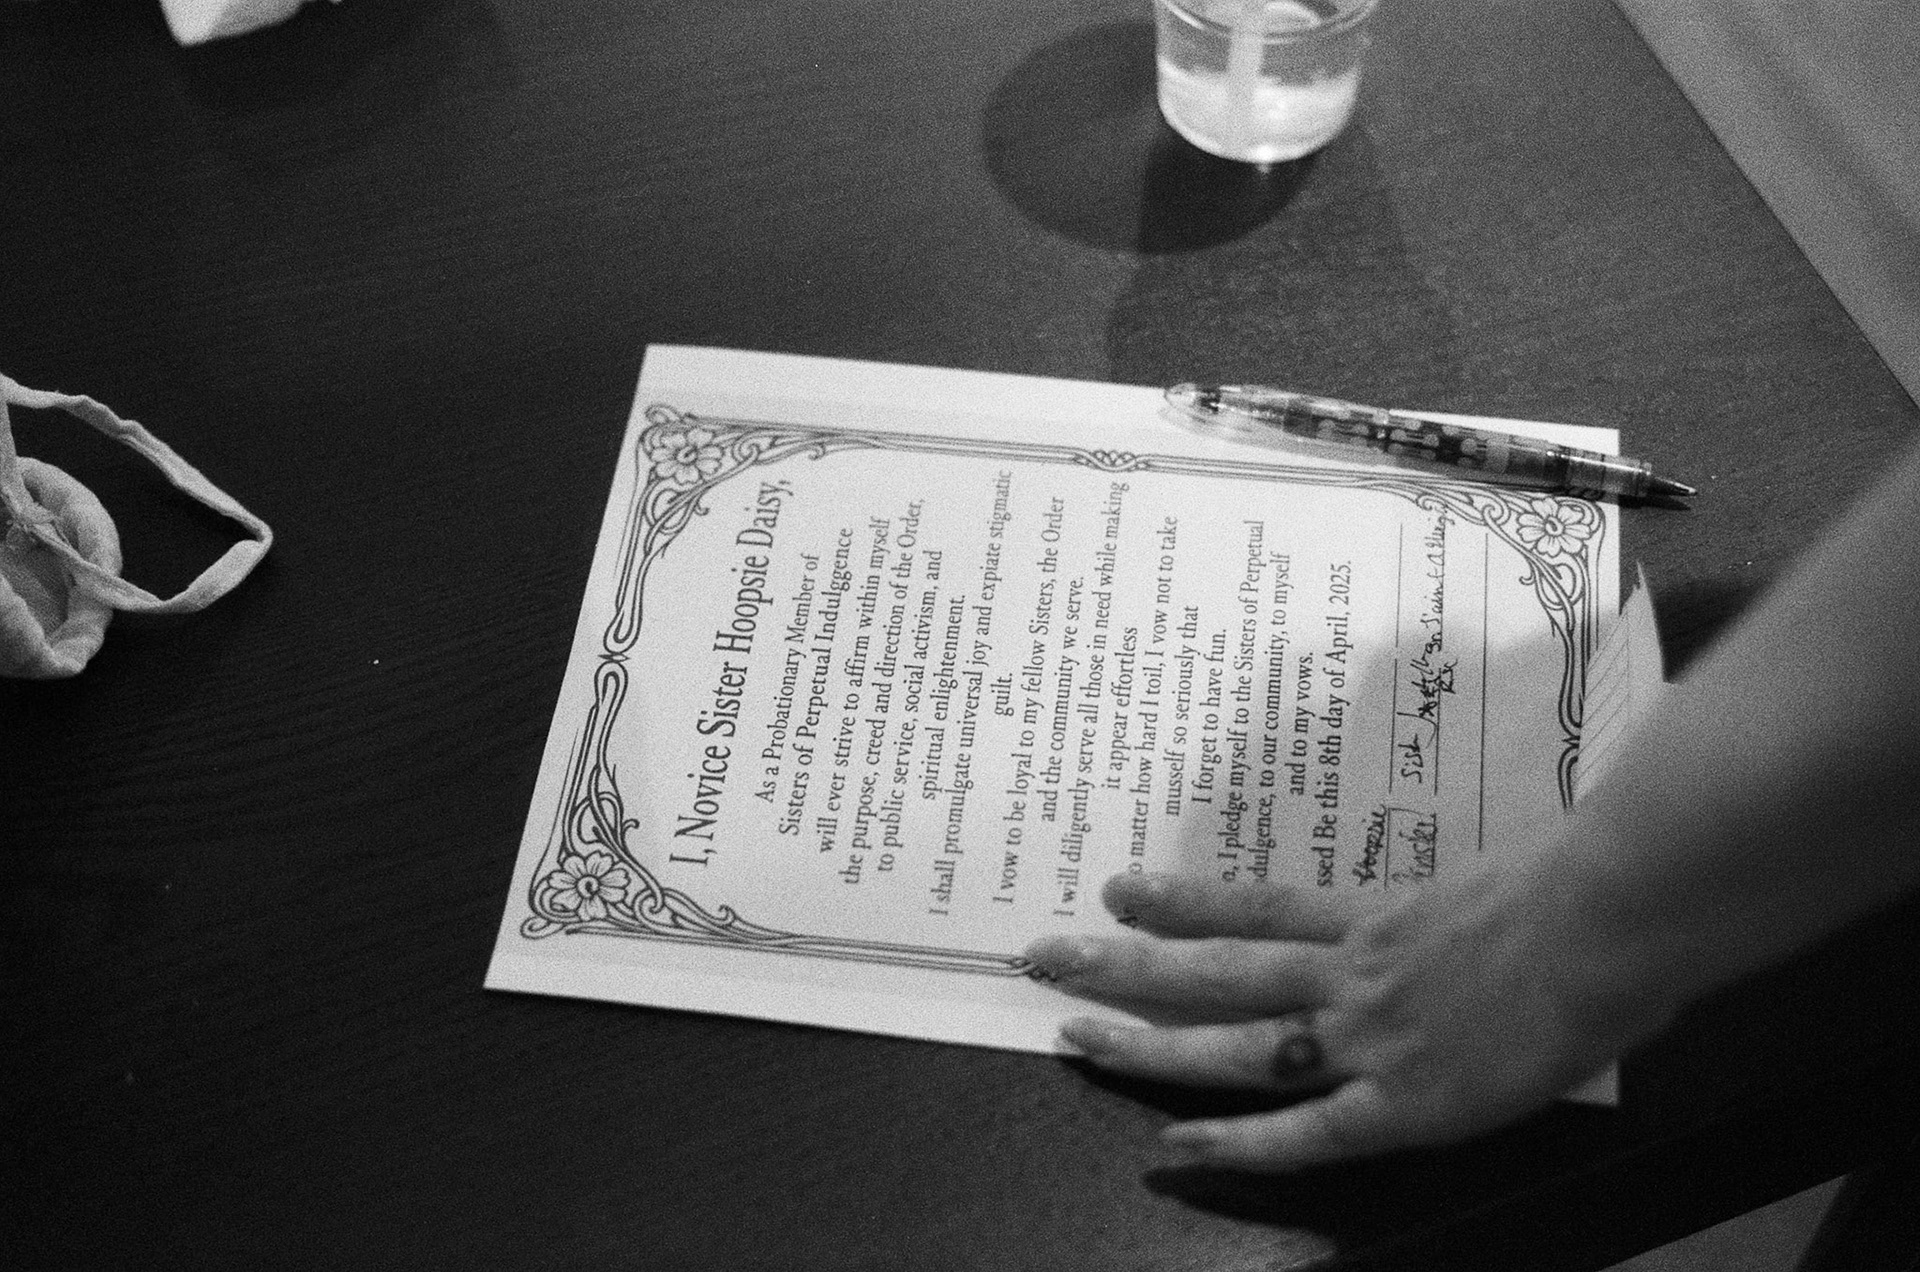 I, Novice Sister Hoopsie Daisy,
As a Probationary Member of
Sisters of Perpetual Indulggence
will ever strive to affirm within myself
the purpose, creed and direction of the Order,
to public service, social activism, and
spiritual enlightenment.
I shall promulgate universal joy and expiate stigmatic
guilt.
I vow to be loyal to my fellow Sisters, the Order
and the community we serve.
I will diligently serve all those in need while making
it appear effortless
o matter how hard I toil, I vow not to take
musself so seriously that
I forget to have fun.
o, I pledge myself to the Sisters of Perpetual
dulgence, to our community, to myself
and to my vows.
ssed Be this 8th day of April, 2025.
Hoopsie